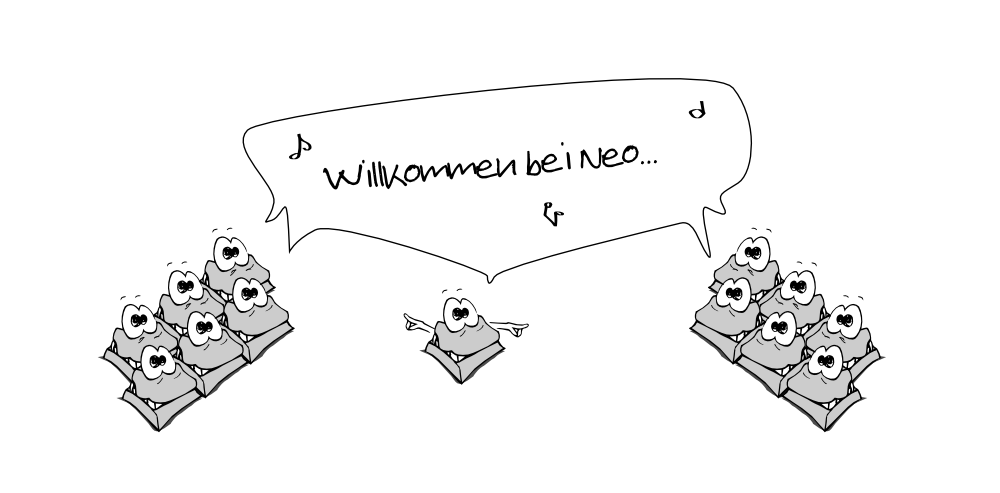 Willkommen bei Neo...